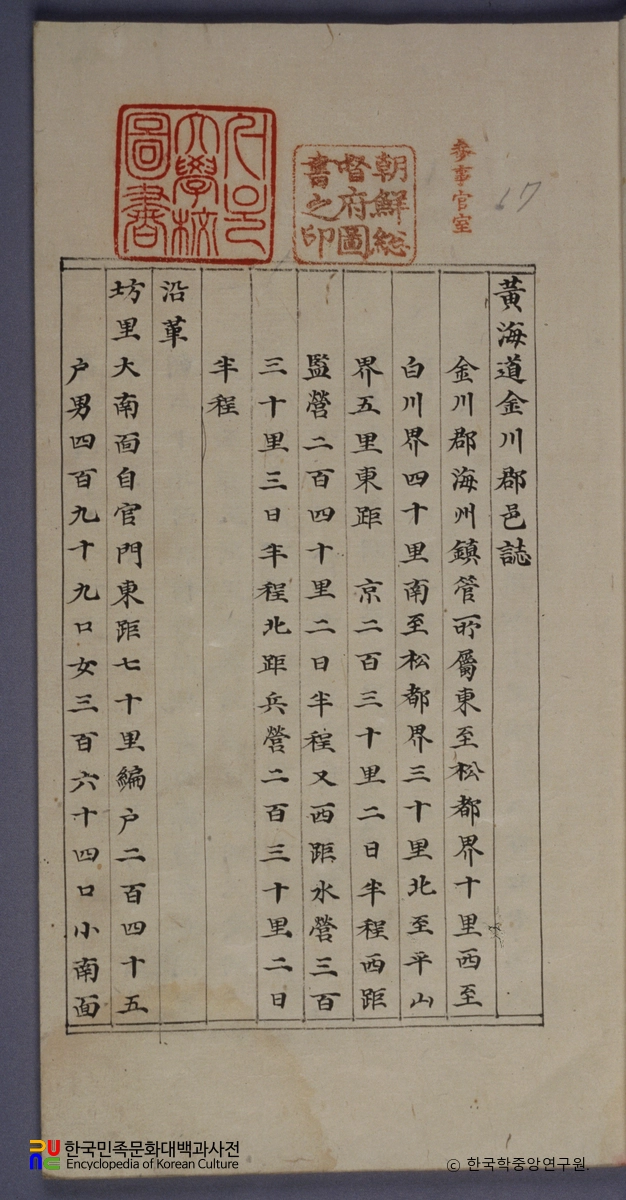 黃海道金川郡邑誌
金川郡海州鎭管所屬東至松都界十里西至
白川界四十里南至松都界三十里北至平山
界五里東距 京二百三十里二日半程西距
監營二百四十里二日半程又西距水營三百
三十里三日半程北距兵營二百三十里二日
半程
沿革
坊里大南面自官門東距七十里編户二百四十五
户男四百九十九口女三百六十四口小南面
參事官室
17
朝鮮総
督府圖
書之印
大學校
圖書
한국민족문화대백과사전
Encyclopedia of Korean Culture
© 한국학중앙연구원.